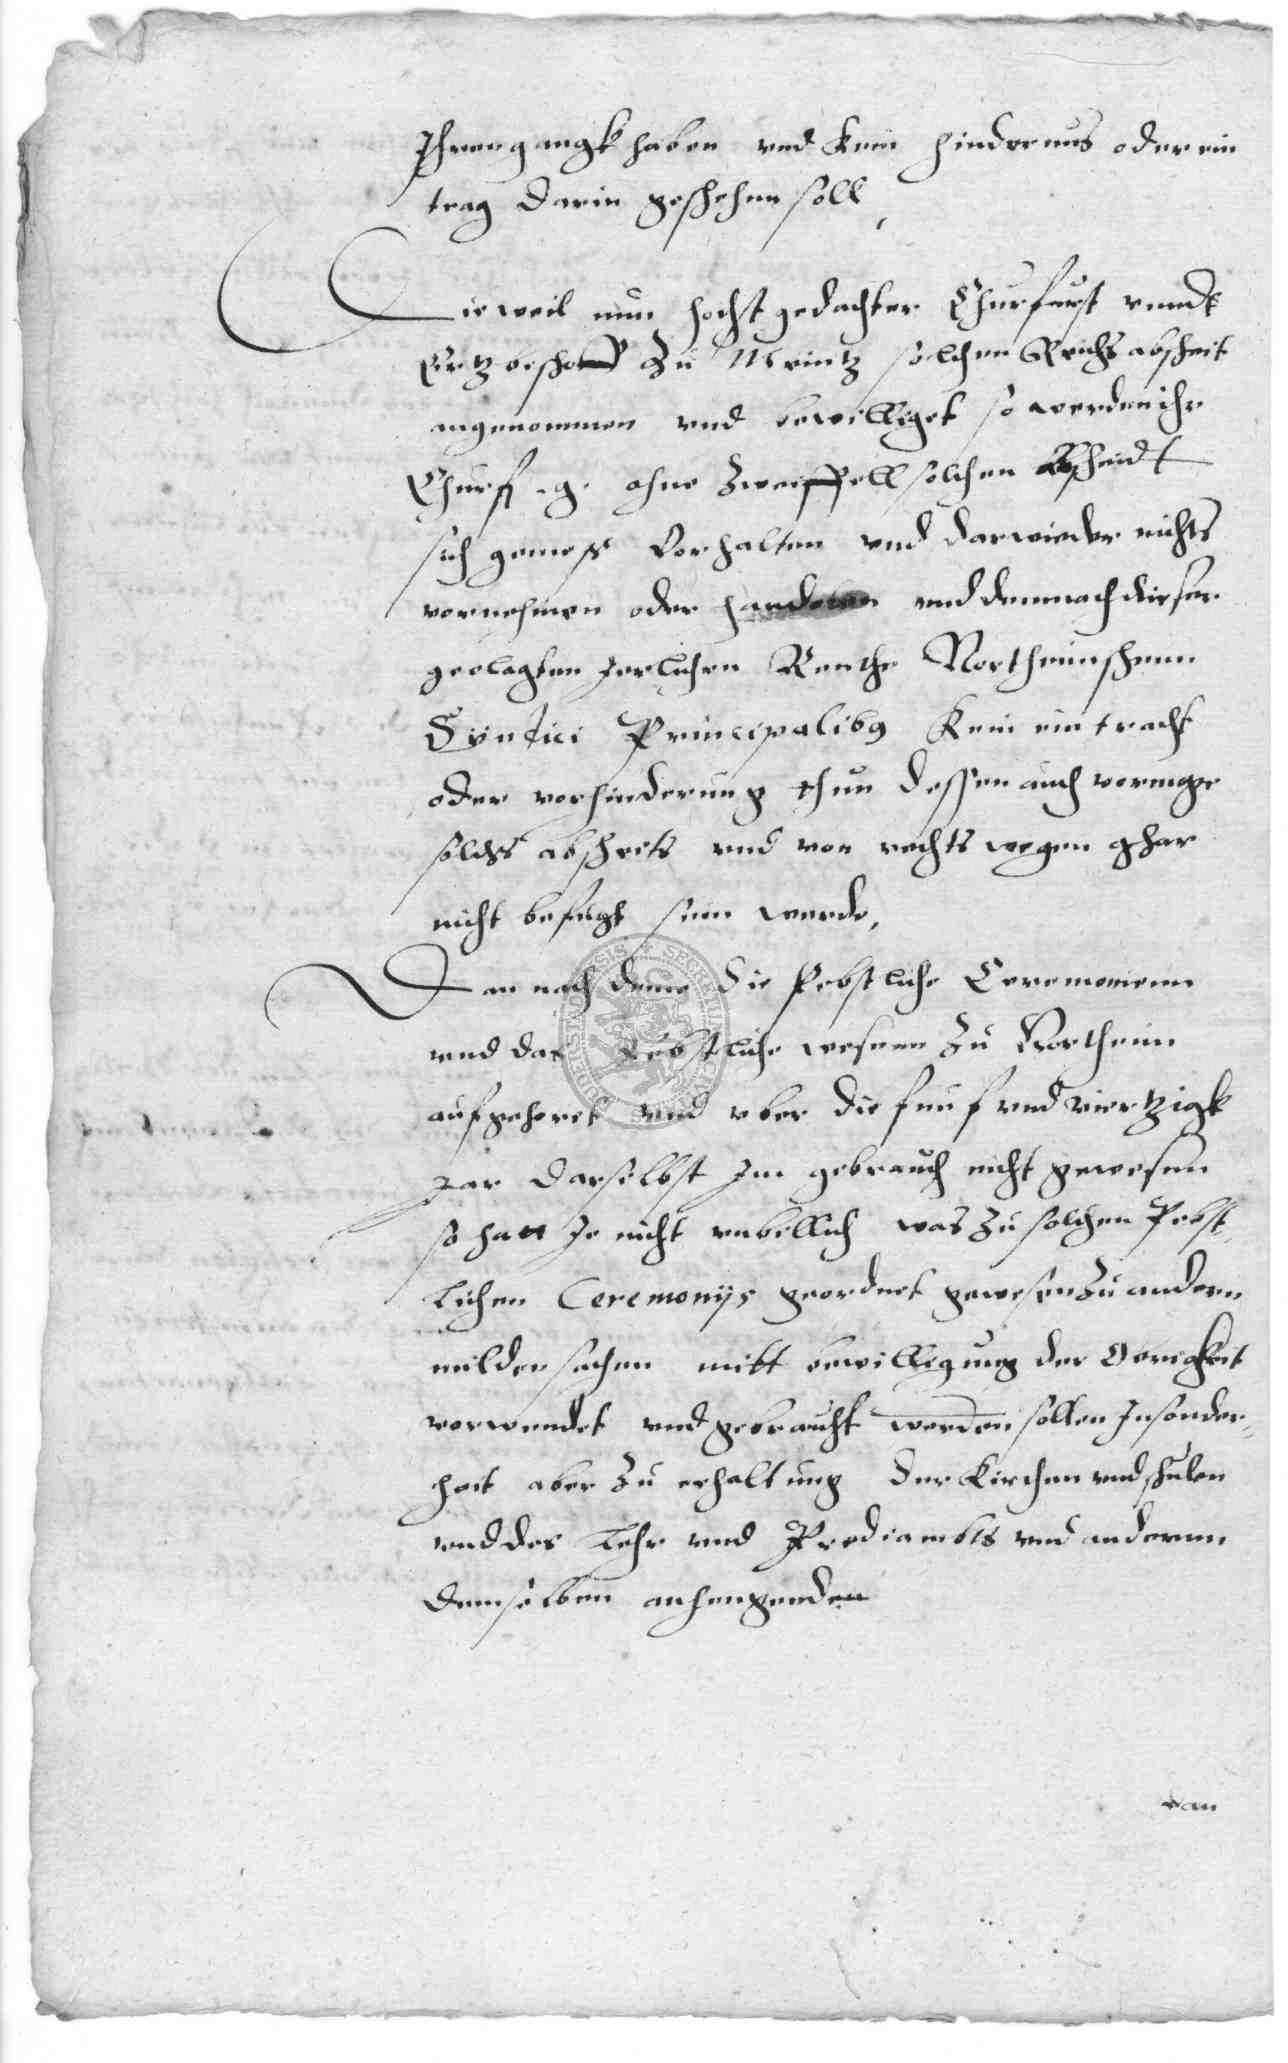 Ihren gangk haben vnd kein hindernus oder ein
trag darin geschehen soll,
Dieweil nun hochstgedachter Churfurst vnndt
Ertzbischoff zu Meintz solchen Reichs abscheit
angenommen vnd bewilliget so werden ihr
Churf. g. ohne Zweiffell solchen abscheidt
sich gemeß vorhalten vnd darwieder nichts
vornehmen oder handelen vnd demnach dieser
geclagten jerlichen Renthe Northeimschenn
Syndici Principalibus kein eintracht
oder vorhinderung thun dessen auch vermuge
solchs abscheits vnd von rechts wegen ghar
nicht befugt sein werde,
Dan nach deme die Pebstliche Ceremonienn
vnd das Pebstliche wesenn zu Northeim
aufgehoret vnd vber die funf vnd viertzigk
Jar darselbst Im gebrauch nicht gewesen
so hatt Je nicht vnbillich was zu solchen Pebst
lichen Ceremonijs geordnet gewesen zu andern
milden sachen mitt bewilligung der Obrigkeit
vorwendet vnd gebraucht werden sollen Insonder-
heit aber zu erhaltung der Kirchen vnd schulen
vnd des Lehr vnd Predigambts vnd anderenn
demselben anhengenden
dan